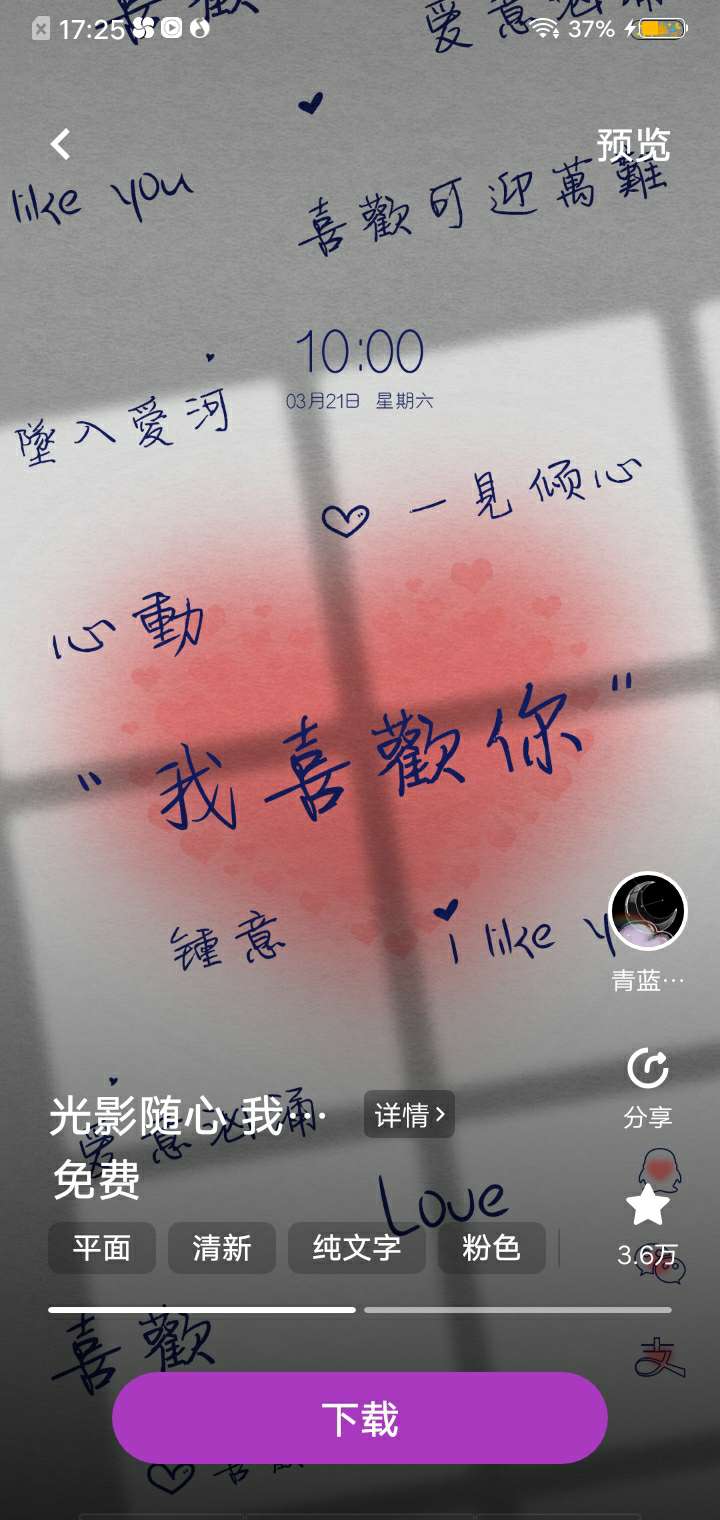 喜歡
愛意洶涌
17:25
37%
預览
like you
喜歡可迎萬難
10:00
03月21日 星期六
墜入愛河
一見倾心
心動
"我喜歡你"
锺意
i like y
青蓝…
分享
光影随心 我…
详情
爱意汹涌
免费
Love
平面
清新
纯文字
粉色
3.6万
喜歡
支
下载